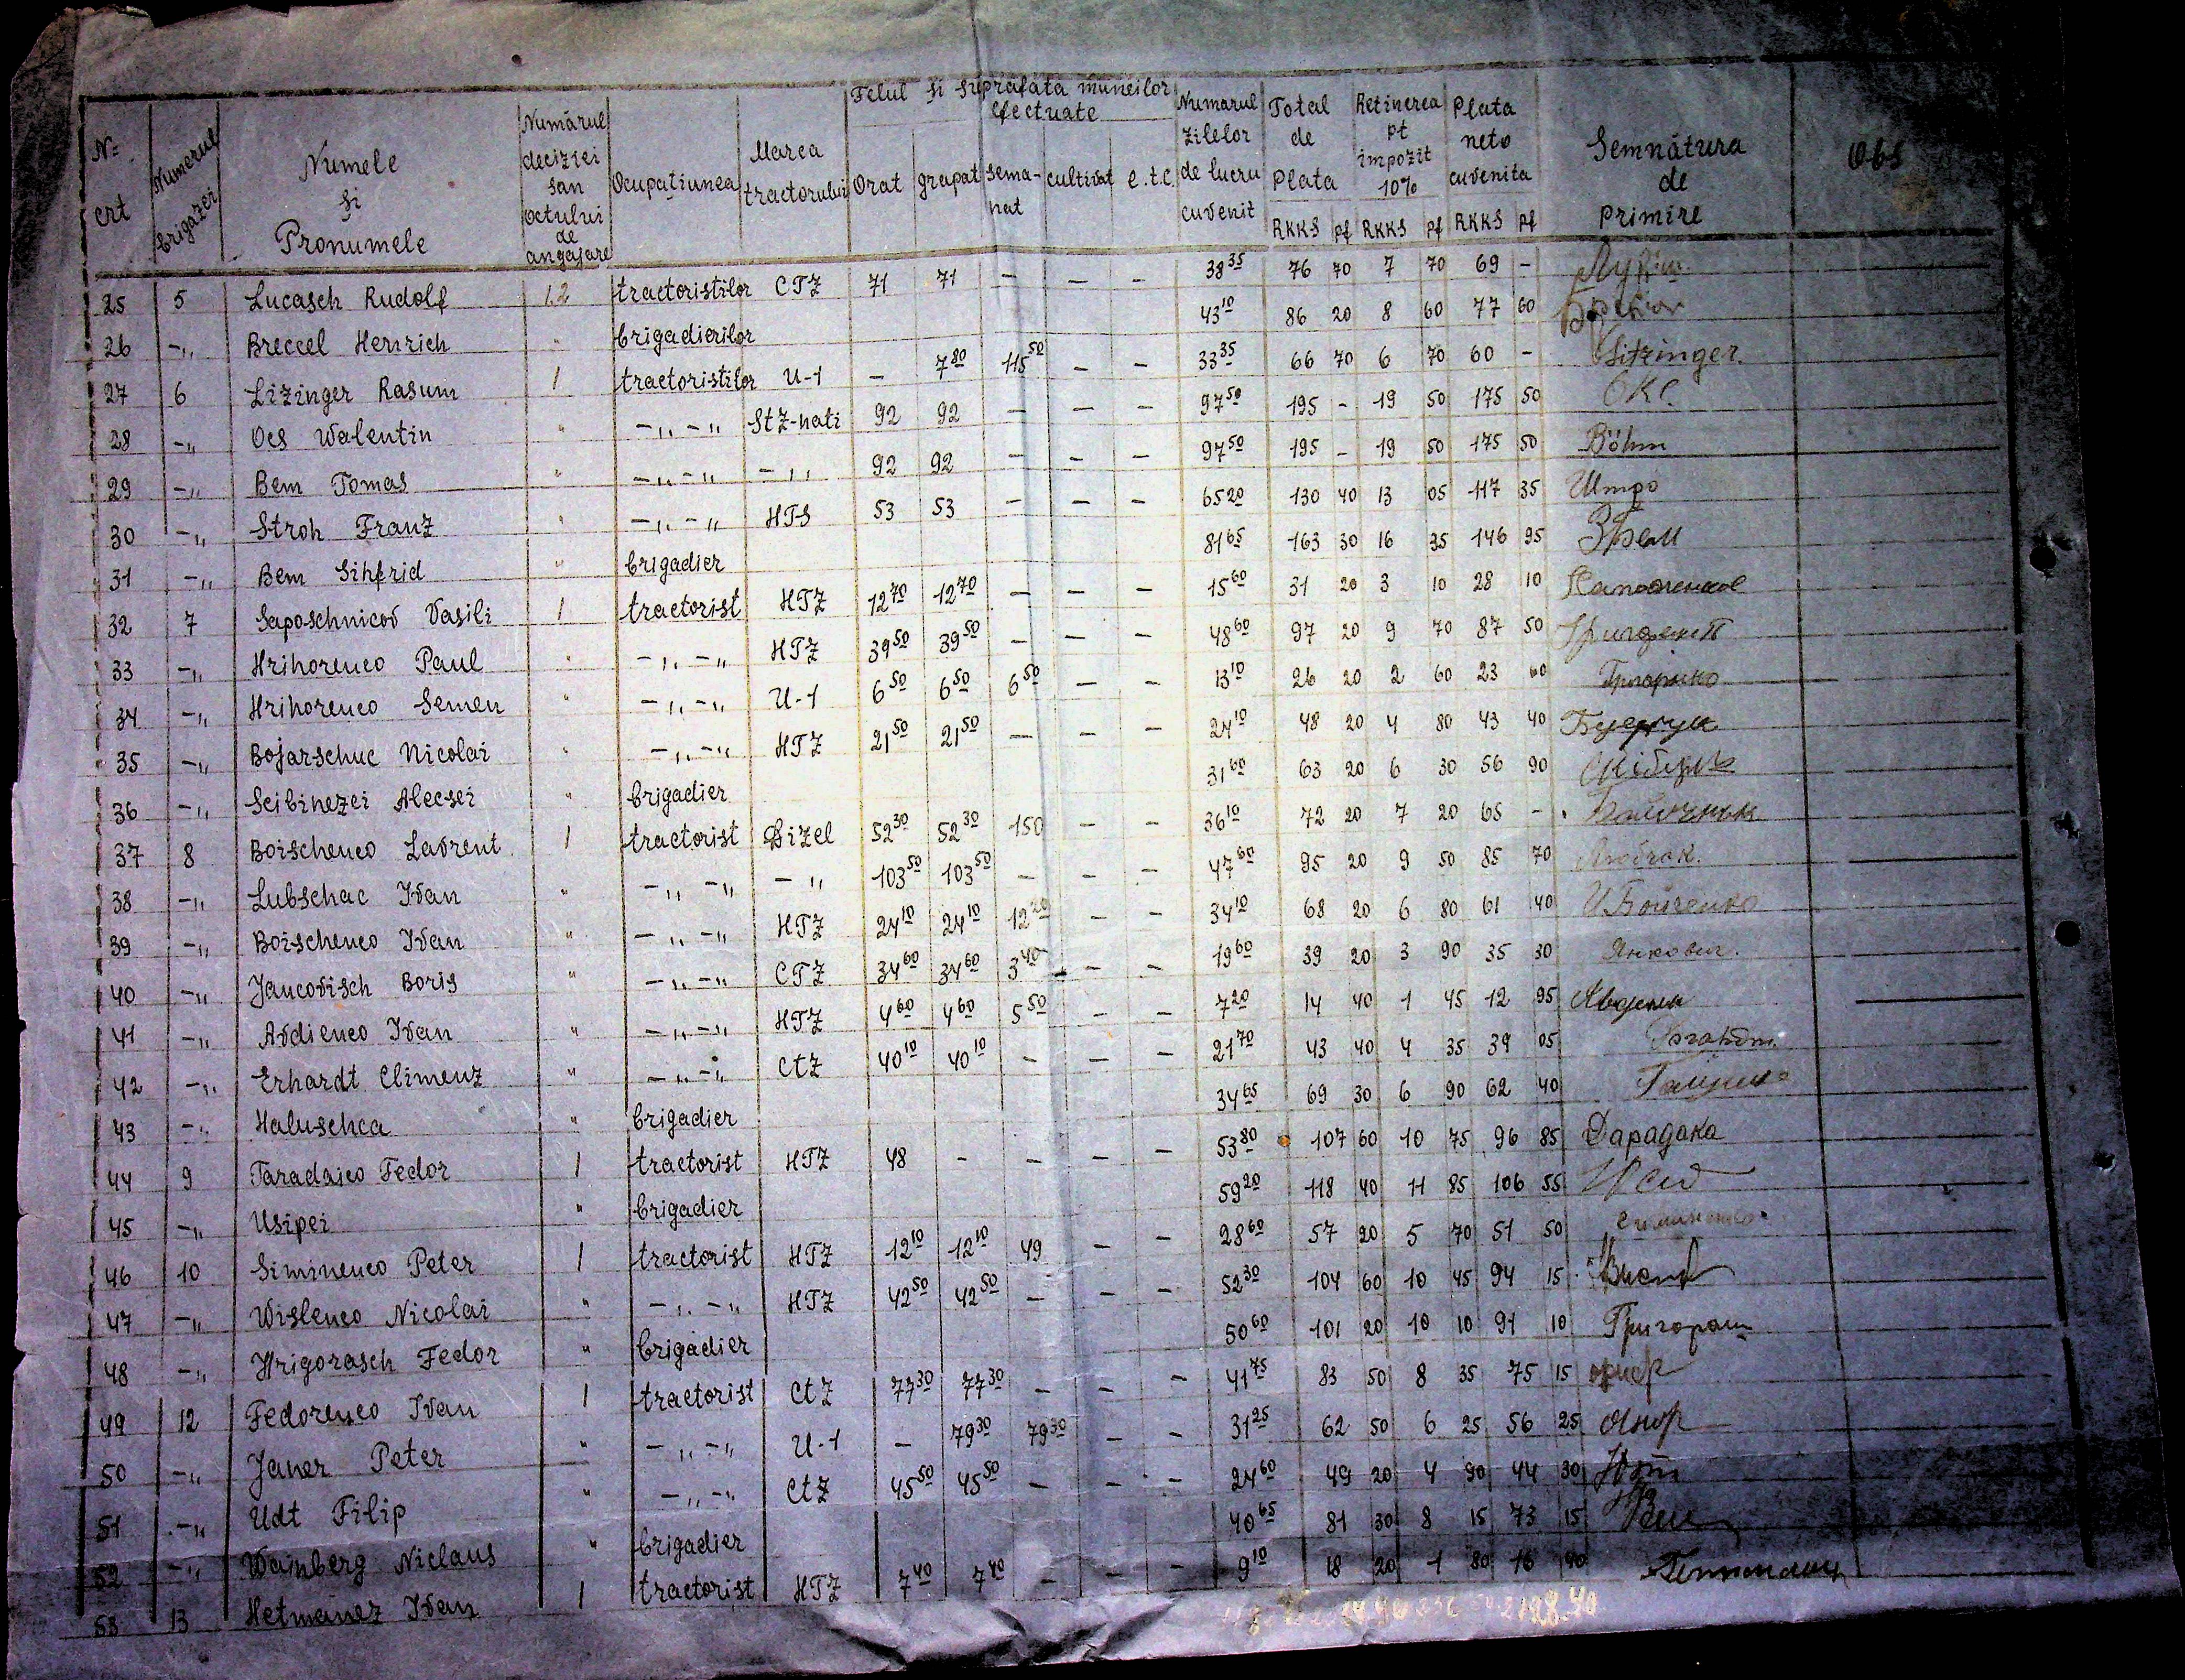 Felul și suprafata muncilor efectuate
N= crt | Numerul brigazei | Numele și Pronumele | Numărul deciziei san octului de angajare | Ocupațiunea | Marca tractorului | Orat | grapat | Sema-nat | cultivat | e.t.c. | Numarul zilelor de lucru cuvenit | Total de Plata RKKS pf | Retinerea pt impozit 10% RKKS pf | Plata neto cuvenita RKKS pf | Semnătura de primire | Obs
25 5 Lucasch Rudolf 12 tractoristilor CTZ 71 71 – – – 38 35 76 70 7 70 69 –
26 –„ Breccel Henrich " brigadierilor 43 10 86 20 8 60 77 60
27 6 Lizinger Rasum 1 tractoristilor U-1 – 7 80 115 50 – – 33 35 66 70 6 70 60 – Sitzinger.
28 –„ Ocs Walentin " –„–„ StZ-nati 92 92 – – – 97 50 195 – 19 50 175 50
29 –„ Bem Tomas " –„–„ –„ 92 92 – – – 97 50 195 – 19 50 175 50 Böhm
30 –„ Stroh Franz " –„–„ HTS 53 53 – – – 65 20 130 40 13 05 117 35 Штро
31 –„ Bem Sihfrid " brigadier 81 65 163 30 16 35 146 95 ЗБем
32 7 Saposchnicov Vasili 1 tractorist HTZ 12 70 12 70 – – – 15 60 31 20 3 10 28 10
33 –„ Hrihorenco Paul " –„–„ HTZ 39 50 39 50 – – – 48 60 97 20 9 70 87 50
34 –„ Hrihorenco Semen " –„–„ U-1 6 50 6 50 6 50 – – 13 10 26 20 2 60 23 60
35 –„ Bojarschuc Nicolai " –„–„ HTZ 21 50 21 50 – – – 24 10 48 20 4 80 43 40
36 –„ Scibinezei Alecsei " brigadier 31 60 63 20 6 30 56 90
37 8 Boischenco Lavrent 1 tractorist Dizel 52 30 52 30 150 – – 36 10 72 20 7 20 65 –
38 –„ Lubschac Ivan " –„–„ –„ 103 50 103 50 – – – 47 60 95 20 9 50 85 70 Любчак.
39 –„ Boischenco Ivan " –„–„ HTZ 24 10 24 10 12 20 – – 34 10 68 20 6 80 61 40 И.Бойченко
40 –„ Jancovisch Boris " –„–„ CTZ 34 60 34 60 3 40 – – 19 60 39 20 3 90 35 30 Янкович.
41 –„ Avdienco Ivan " –„–„ HTZ 4 60 4 60 5 50 – – 7 20 14 40 1 45 12 95
42 –„ Erhardt Climenz " –„–„ CtZ 40 10 40 10 – – – 21 70 43 40 4 35 39 05
43 –„ Haluschca " brigadier 34 65 69 30 6 90 62 40
44 9 Taradaico Fedor 1 tractorist HTZ 48 – – – – 53 80 107 60 10 75 96 85 Дарадака
45 –„ Usipei " brigadier 59 20 118 40 11 85 106 55
46 10 Siminenco Peter 1 tractorist HTZ 12 10 12 10 49 – – 28 60 57 20 5 70 51 50 симиненко
47 –„ Wislenco Nicolai " –„–„ HTZ 42 50 42 50 – – – 52 30 104 60 10 45 94 15
48 –„ Hrigorasch Fedor " brigadier 50 60 101 20 10 10 91 10 Григораш
49 12 Fedorenco Ivan 1 tractorist CtZ 77 30 77 30 – – – 41 75 83 50 8 35 75 15
50 –„ Janer Peter " –„–„ U-1 – 79 30 79 30 – – 31 25 62 50 6 25 56 25
51 –„ Udt Filip " –„–„ CtZ 45 50 45 50 – – – 24 60 49 20 4 90 44 30
52 –„ Wainberg Niclaus " brigadier 40 65 81 30 8 15 73 15
53 13 Hetmanez Ivan 1 tractorist HTZ 7 40 7 40 – – – 9 10 18 20 1 80 16 40
2128.40